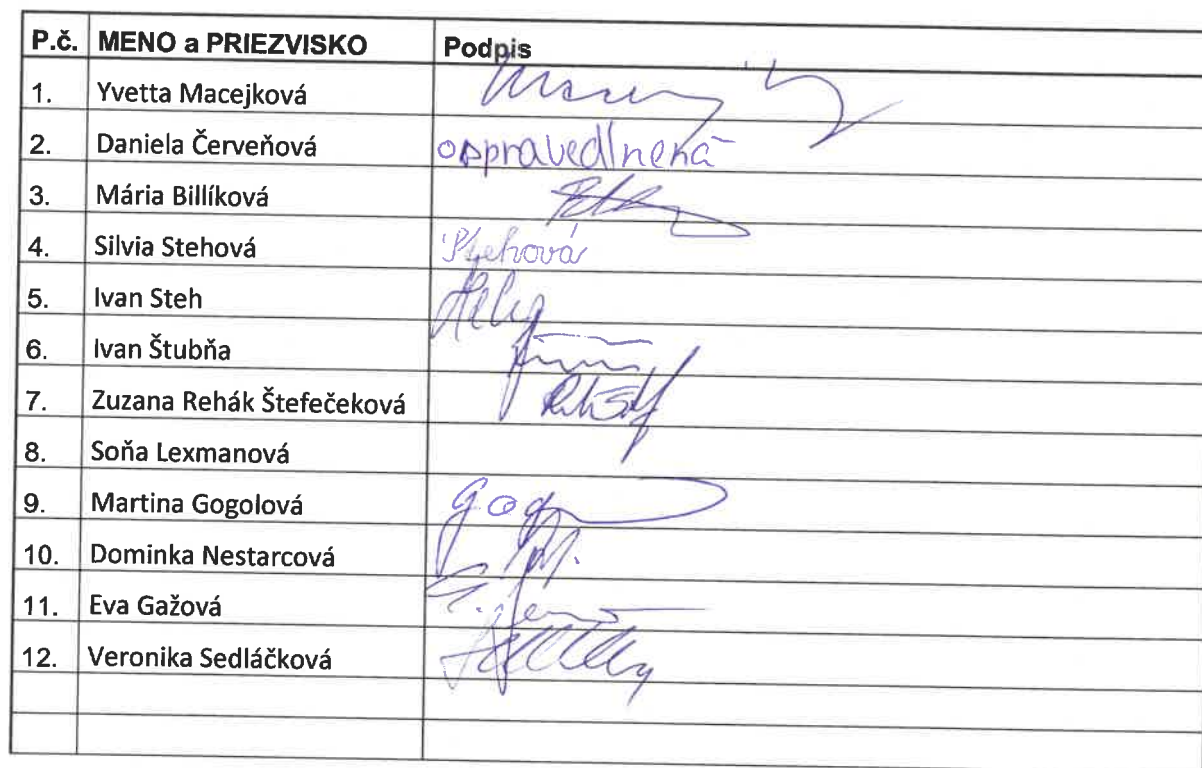 P.č. MENO a PRIEZVISKO Podpis
1. Yvetta Macejková
2. Daniela Červeňová ospravedlnená
3. Mária Billíková
4. Silvia Stehová Stehová
5. Ivan Steh
6. Ivan Štubňa
7. Zuzana Rehák Štefečeková
8. Soňa Lexmanová
9. Martina Gogolová
10. Dominka Nestarcová
11. Eva Gažová
12. Veronika Sedláčková